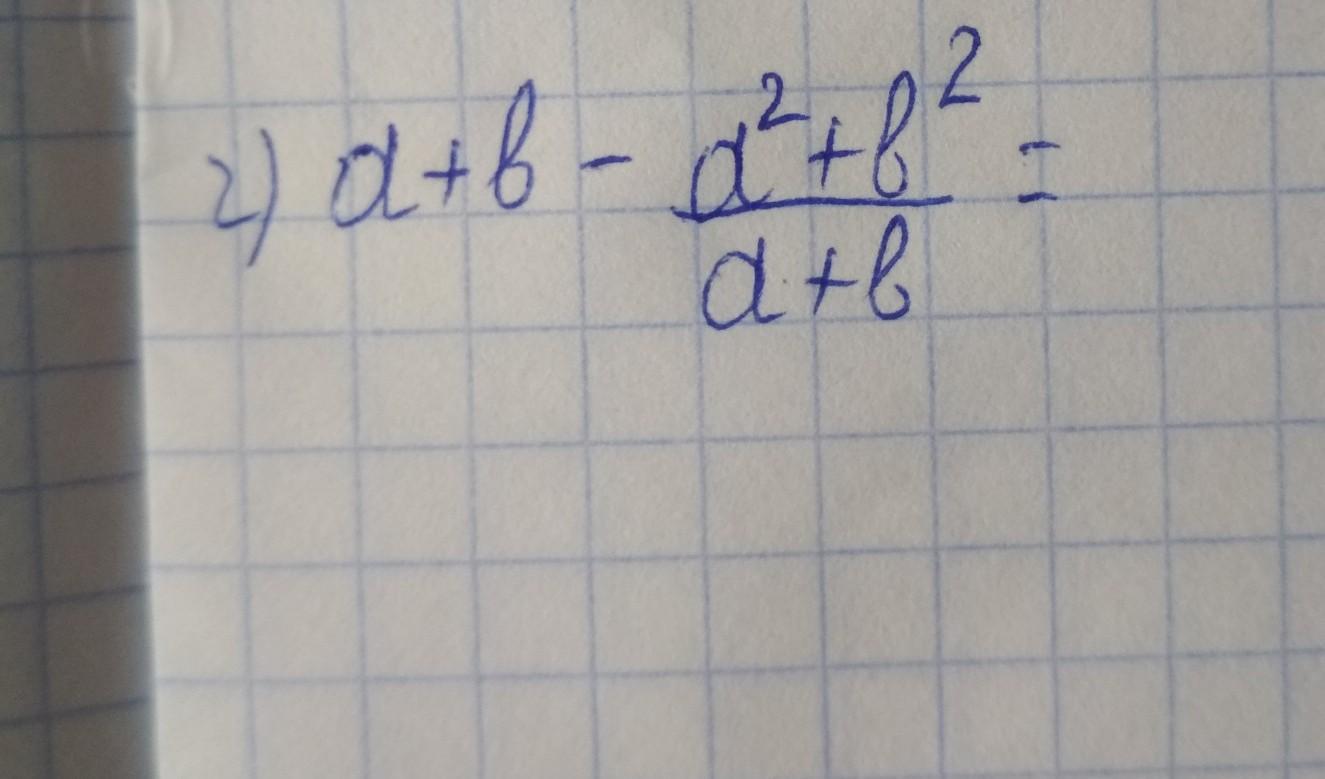 2) a+b - \frac{a^2+b^2}{a+b} =